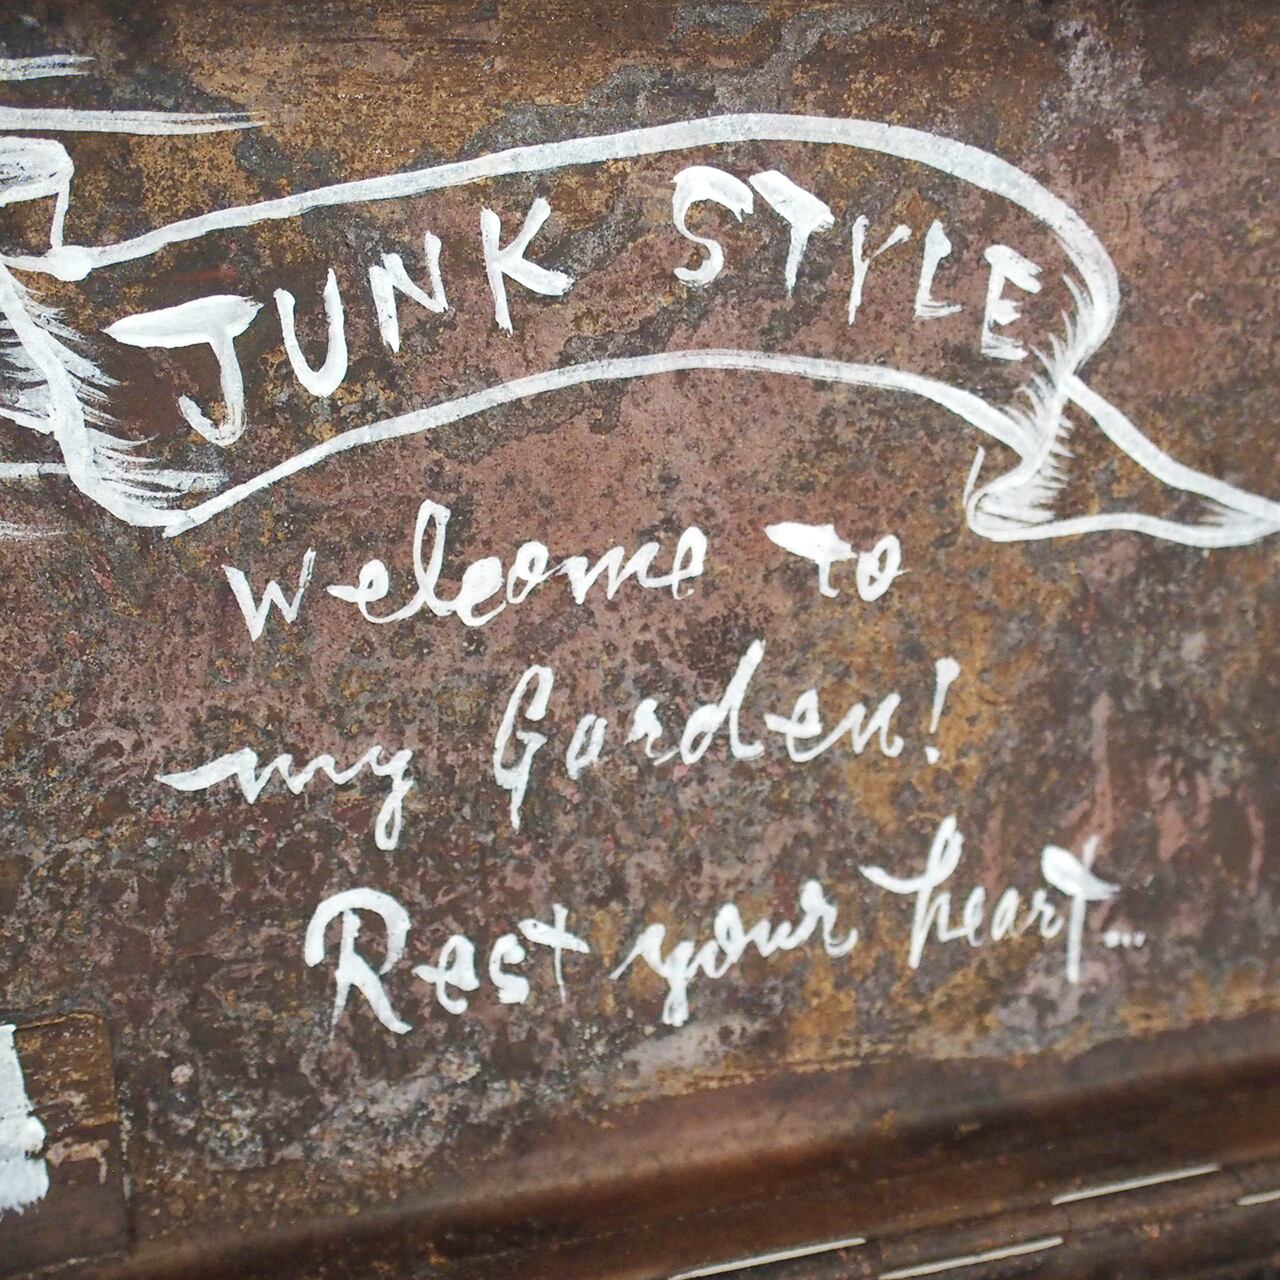 JUNK STYLE
Welcome to
my Garden!
Rest your heart...